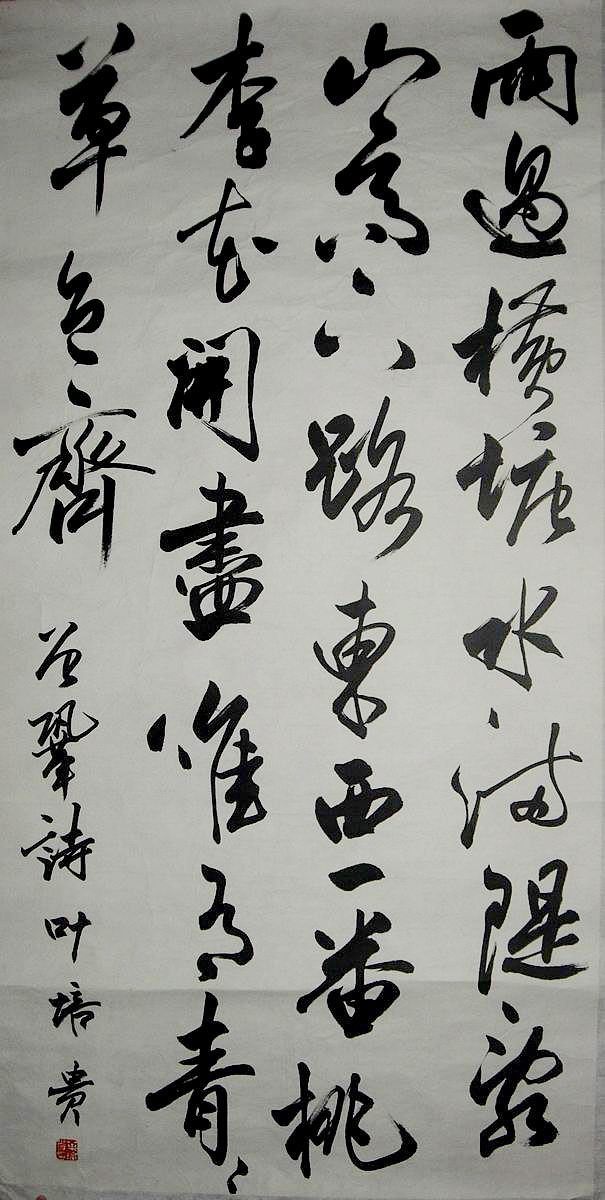 雨過橫塘水滿隄亂
山高下路東西一番桃
李花開盡惟有青〻
草色齊 曾鞏詩 叶培貴